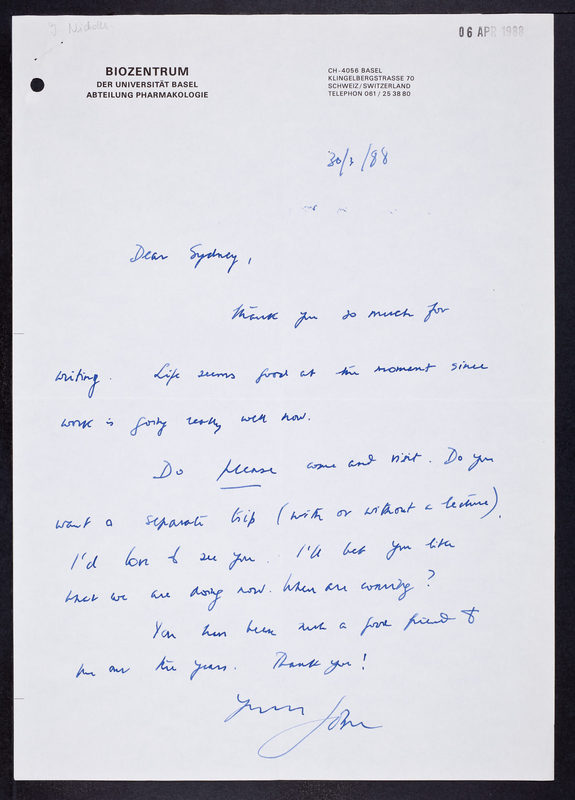 J. Nicholls
06 APR 1988
BIOZENTRUM
DER UNIVERSITÄT BASEL
ABTEILUNG PHARMAKOLOGIE
CH-4056 BASEL
KLINGELBERGSTRASSE 70
SCHWEIZ/SWITZERLAND
TELEPHON 061 / 25 38 80
/88
Dear Sydney,
Thank you so much for
writing. Life seems good at the moment since
work is going really well now.
Do please come and visit. Do you
want a separate trip (with or without a lecture).
I'd love to see you. I'll bet you like
what we are doing now. When are coming?
You have been such a good friend to
me over the years. Thank you!
Yours John